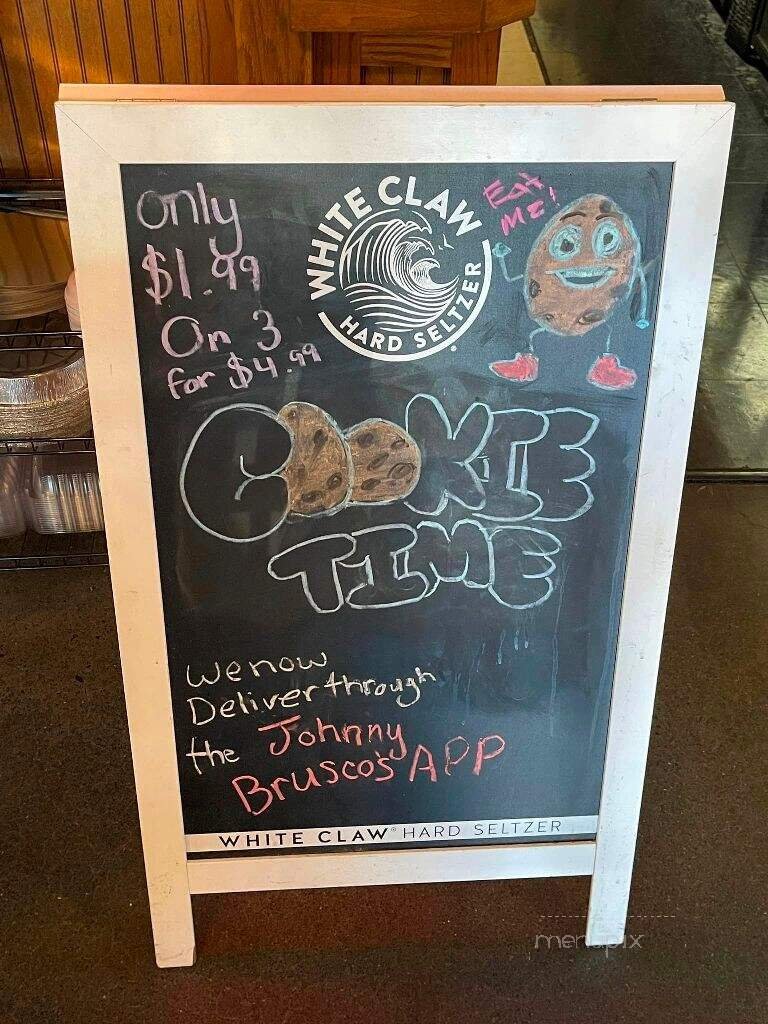 only
$1.99
On 3
for $4.99
WHITE CLAW
HARD SELTZER
®
Eat
Me!
COOKIE
TIME
we now
Deliver through
the Johnny
Brusco's APP
WHITE CLAW® HARD SELTZER
menupix